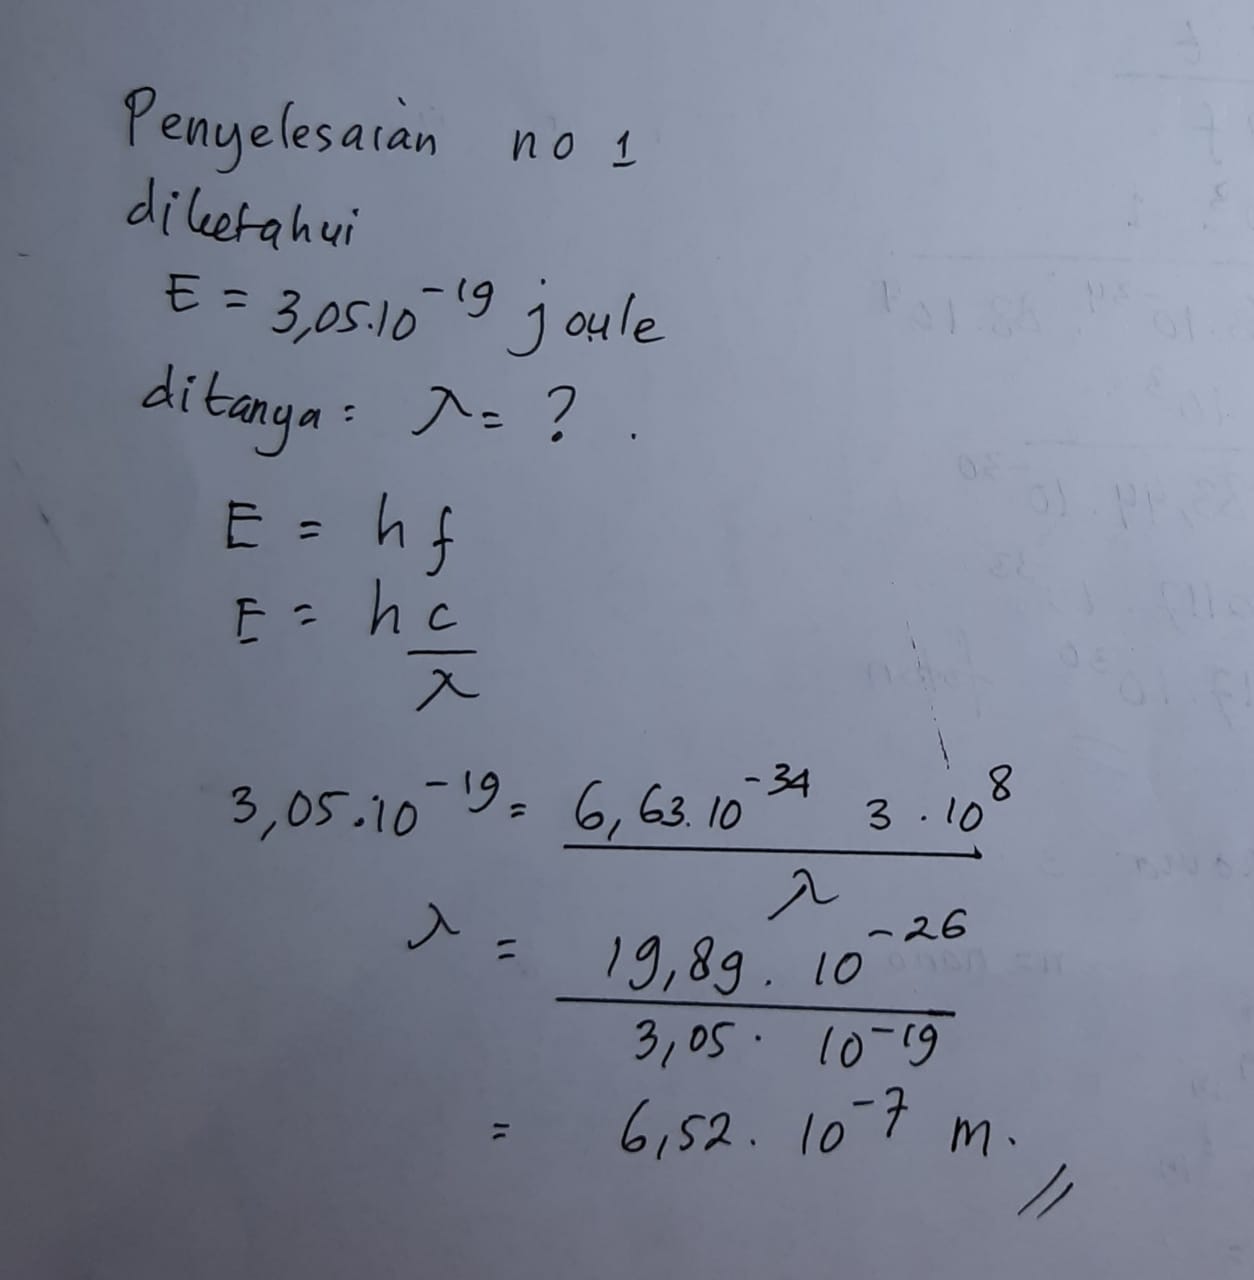 Penyelesaian no 1
diketahui
E = 3,05.10⁻¹⁹ joule
ditanya = λ = ? .
E = h f
E = h c
λ
3,05.10⁻¹⁹ = 6,63.10⁻³⁴ 3 . 10⁸
λ
λ = 19,89 . 10⁻²⁶
3,05 . 10⁻¹⁹
= 6,52 . 10⁻⁷ m . //